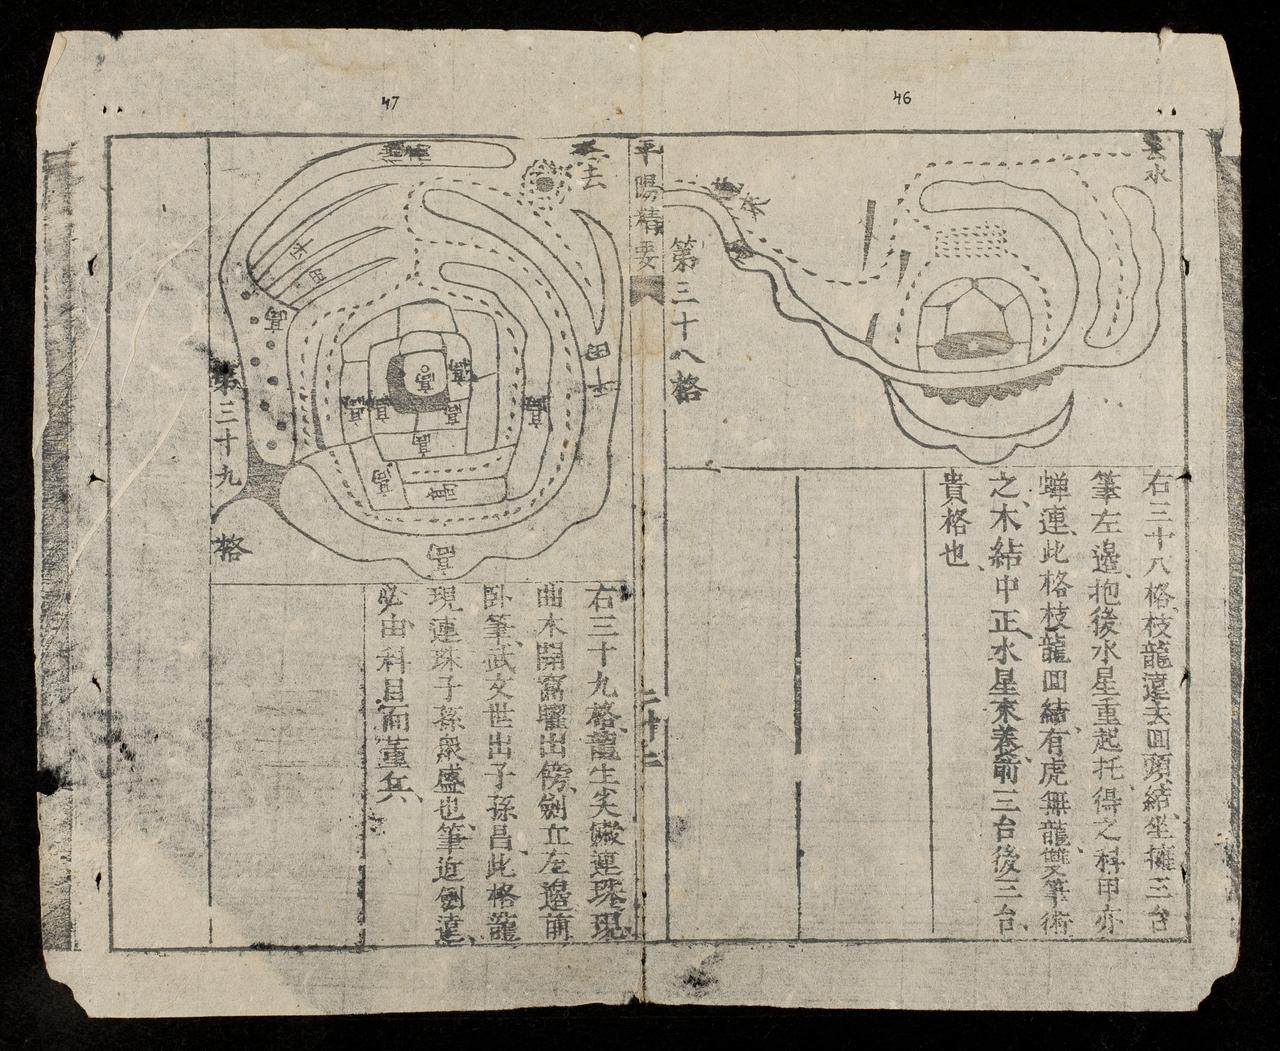 46
去水
第三十八格
右三十八格枝龍遠去回頭結坐擁三台
筆左邊抱後水星重起托得之科甲亦
蟬連此格枝龍回結有虎無龍雙筆術
之木結中正水星來養前三台後三台
貴格也
平陽精要
47
去
平田
高
平田
高
高
高
高
高
高
高
第三十九格
右三十九格龍生尖嫩連珠現
曲木開窩曜出傍劍立左邊前
卧筆武文世出子孫昌此格龍
現連珠子孫衆盛也筆近劍遠
必由科目而董兵